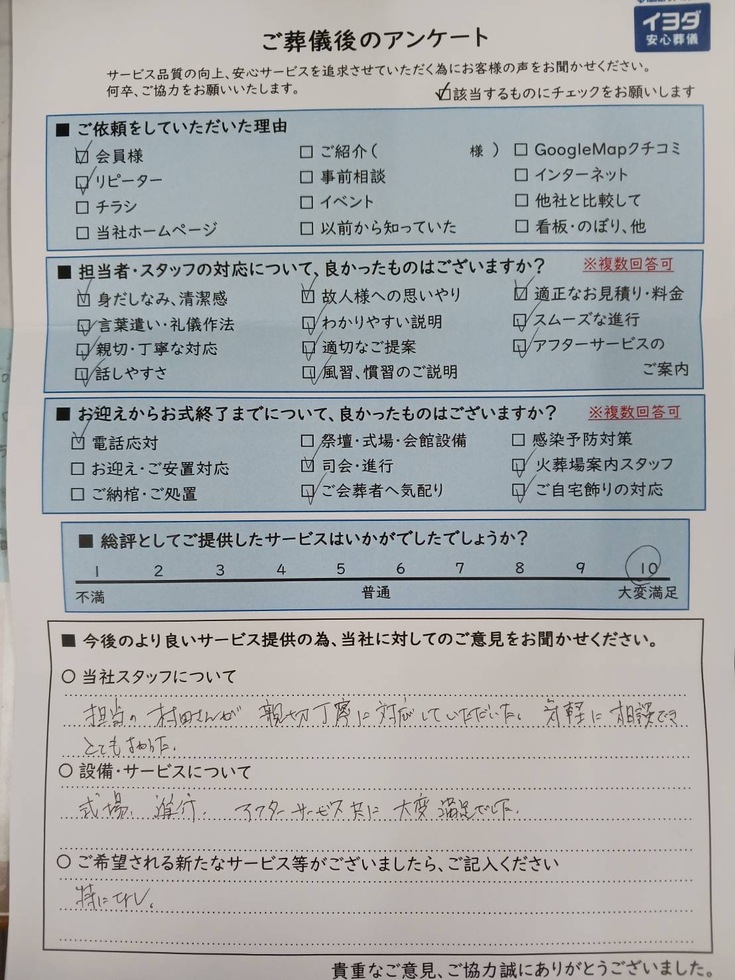 イヨダ
安心葬儀
ご葬儀後のアンケート
サービス品質の向上、安心サービスを追求させていただく為にお客様の声をお聞かせください。
何卒、ご協力をお願いいたします。
☑該当するものにチェックをお願いします
■ ご依頼をしていただいた理由
☑ 会員様 □ ご紹介( 様 ) □ GoogleMapクチコミ
☑ リピーター □ 事前相談 □ インターネット
□ チラシ □ イベント □ 他社と比較して
□ 当社ホームページ □ 以前から知っていた □ 看板・のぼり、他
■ 担当者・スタッフの対応について、良かったものはございますか? ※複数回答可
☑ 身だしなみ、清潔感 ☑ 故人様への思いやり ☑ 適正なお見積り・料金
☑ 言葉遣い・礼儀作法 ☑ わかりやすい説明 ☑ スムーズな進行
☑ 親切・丁寧な対応 ☑ 適切なご提案 ☑ アフターサービスの
☑ 話しやすさ ☑ 風習、慣習のご説明 ご案内
■ お迎えからお式終了までについて、良かったものはございますか? ※複数回答可
☑ 電話応対 □ 祭壇・式場・会館設備 □ 感染予防対策
□ お迎え・ご安置対応 ☑ 司会・進行 ☑ 火葬場案内スタッフ
□ ご納棺・ご処置 ☑ ご会葬者へ気配り ☑ ご自宅飾りの対応
■ 総評としてご提供したサービスはいかがでしたでしょうか?
1 2 3 4 5 6 7 8 9 10
不満 普通 大変満足
■ 今後のより良いサービス提供の為、当社に対してのご意見をお聞かせください。
○ 当社スタッフについて
担当の村田さんが親切丁寧に対応していただいた。気軽に相談でき
とてもよかった。
○ 設備・サービスについて
式場、進行、アフターサービス共に大変満足でした。
○ ご希望される新たなサービス等がございましたら、ご記入ください
特になし。
貴重なご意見、ご協力誠にありがとうございました。